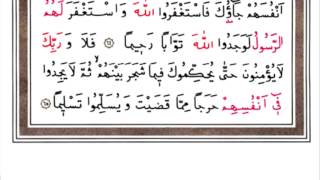 اَنْفُسَهُمْ جَٓاؤُ۫كَ فَاسْتَغْفَرُوا اللّٰهَ وَاسْتَغْفَرَ لَهُمُ
الرَّسُولُ لَوَجَدُوا اللّٰهَ تَوَّابًا رَح۪يمًا ﴿٦٤﴾ فَلَا وَرَبِّكَ
لَا يُؤْمِنُونَ حَتّٰى يُحَكِّمُوكَ ف۪يمَا شَجَرَ بَيْنَهُمْ ثُمَّ لَا يَجِدُوا
ف۪ٓي اَنْفُسِهِمْ حَرَجًا مِمَّا قَضَيْتَ وَيُسَلِّمُوا تَسْل۪يمًا ﴿٦٥﴾